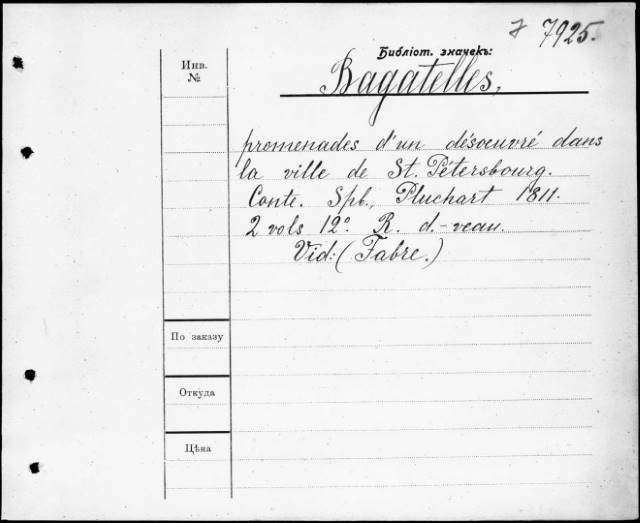 7925.
Библіот. значекъ:
Инв.
№
Bagatelles,
promenades d'un désoeuvré dans
la ville de St. Pétersbourg.
Conte. Spb., Pluchart 1811.
2 vols 12°. R. d.-veau.
Vid: (Fabre.)
По заказу
Откуда
Цѣна